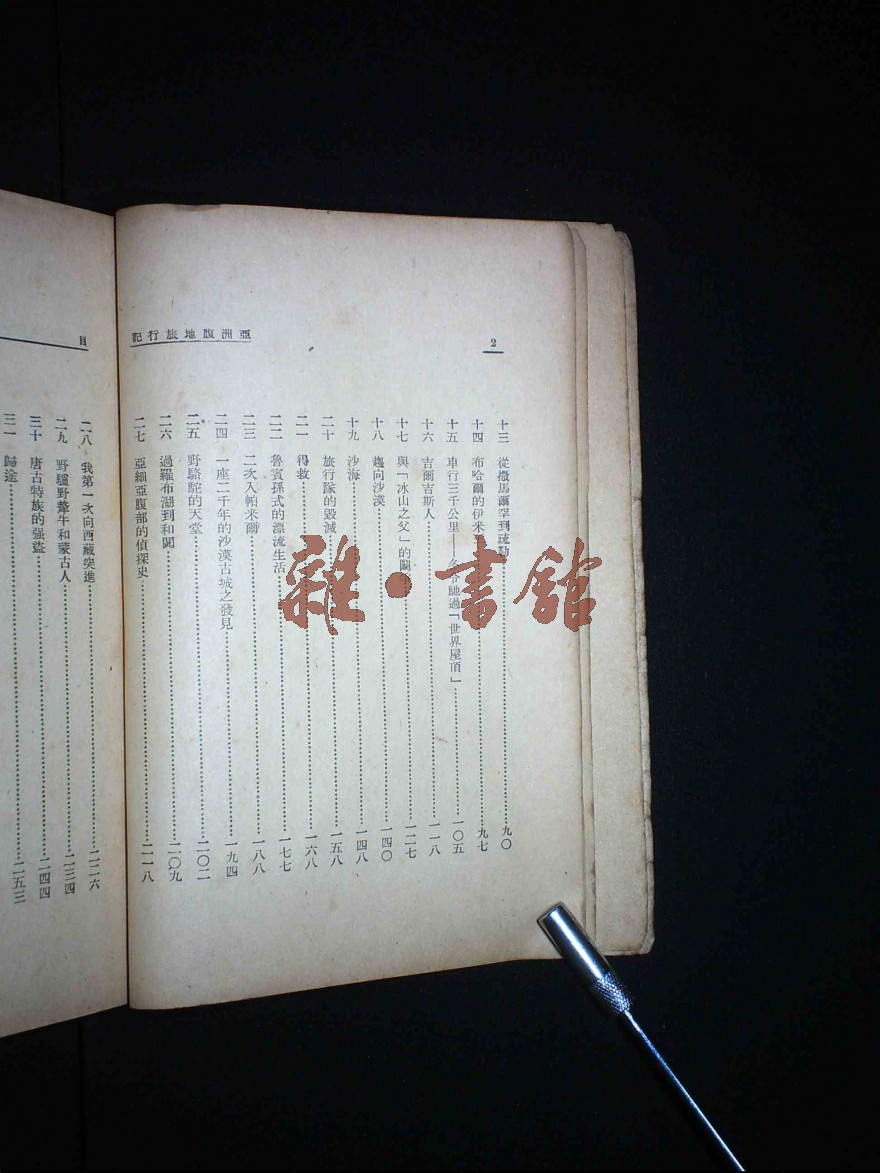 2
亞洲腹地旅行記
十三 從撒馬爾罕到疏勒 九〇
十四 布哈爾的伊米 九七
十五 車行三千公里——冬令馳過「世界屋頂」 一〇五
十六 吉爾吉斯人 一一八
十七 與「冰山之父」的鬭 一二七
十八 趨向沙漠 一四〇
十九 沙海 一四八
二十 旅行隊的毀滅 一五八
二一 得救 一六八
二二 魯賓孫式的漂流生活 一七七
二三 二次入帕米爾 一八八
二四 一座二千年的沙漠古城之發見 一九四
二五 野駱駝的天堂 二〇二
二六 過羅布湖到和闐 二〇九
二七 亞細亞腹部的偵探史 二一八
目
二八 我第一次向西藏突進 二二六
二九 野驢野犛牛和蒙古人 二三四
三十 唐古特族的强盜 二四四
三一 歸途 二五三
雜·書館